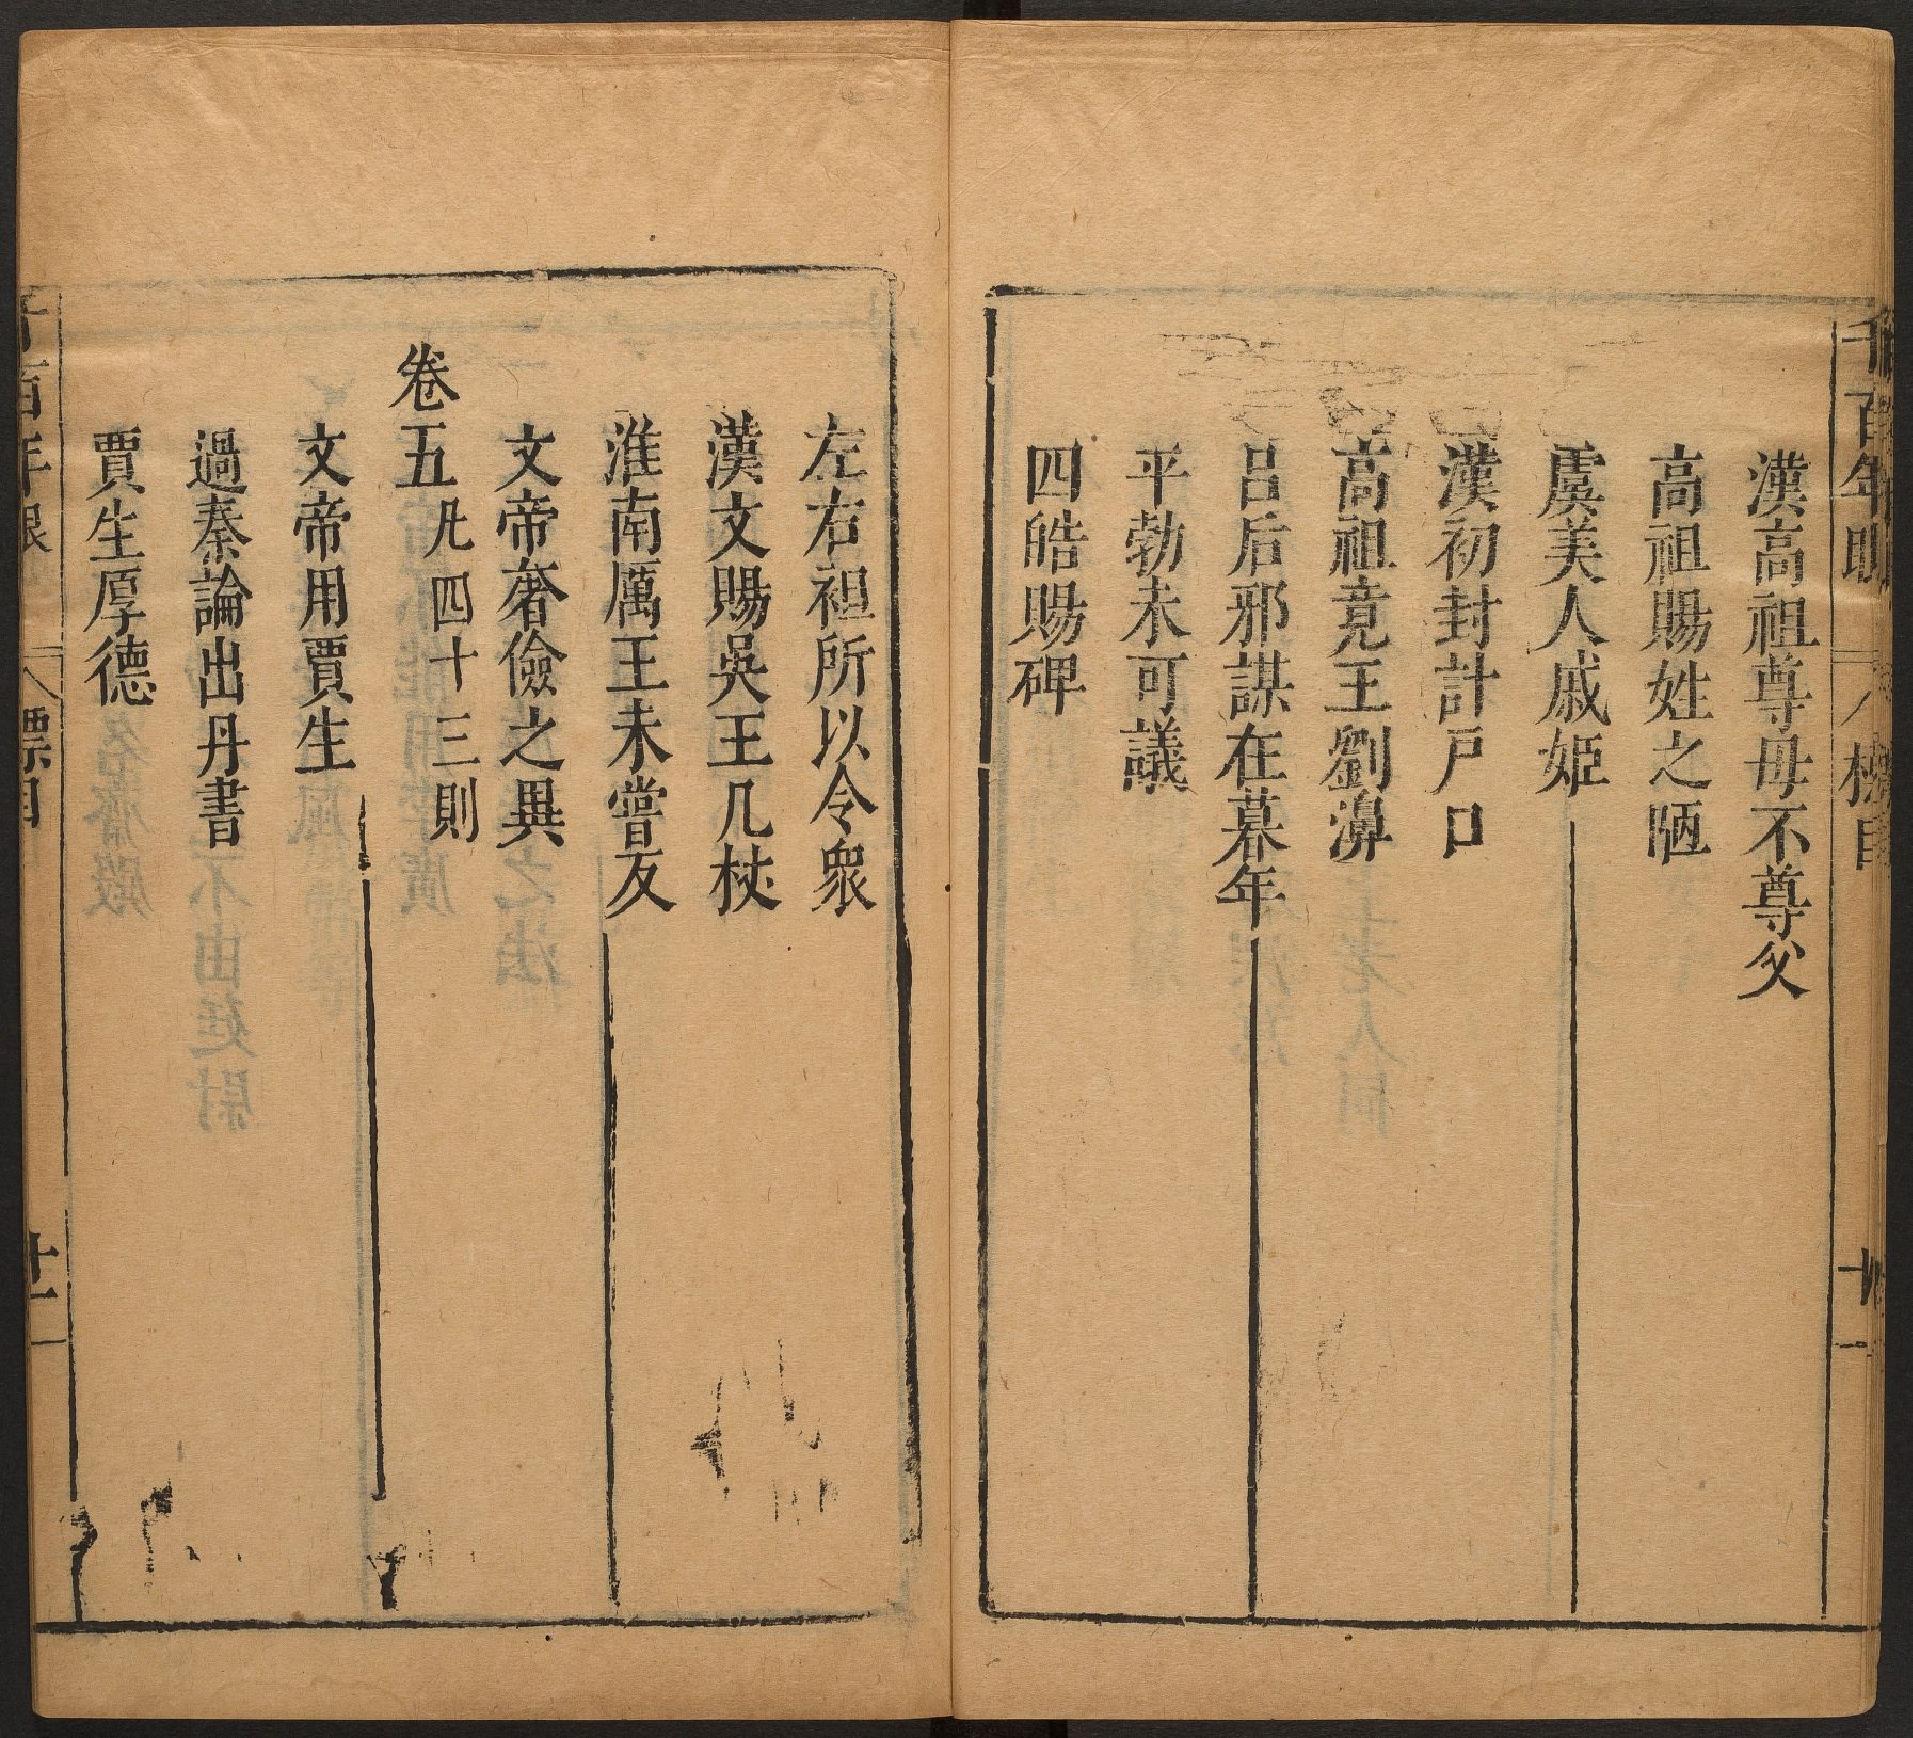 漢高祖尊母不尊父
高祖賜姓之陋
虞美人戚姬
漢初封計戶口
高祖竟王劉濞
呂后邪謀在暮年
平勃未可議
四皓賜碑
左右袒所以令衆
漢文賜吳王几杖
淮南厲王未嘗反
文帝奢儉之異
卷五凡四十三則
文帝用賈生
過秦論出丹書
賈生厚德
千百年眼 標目 十一